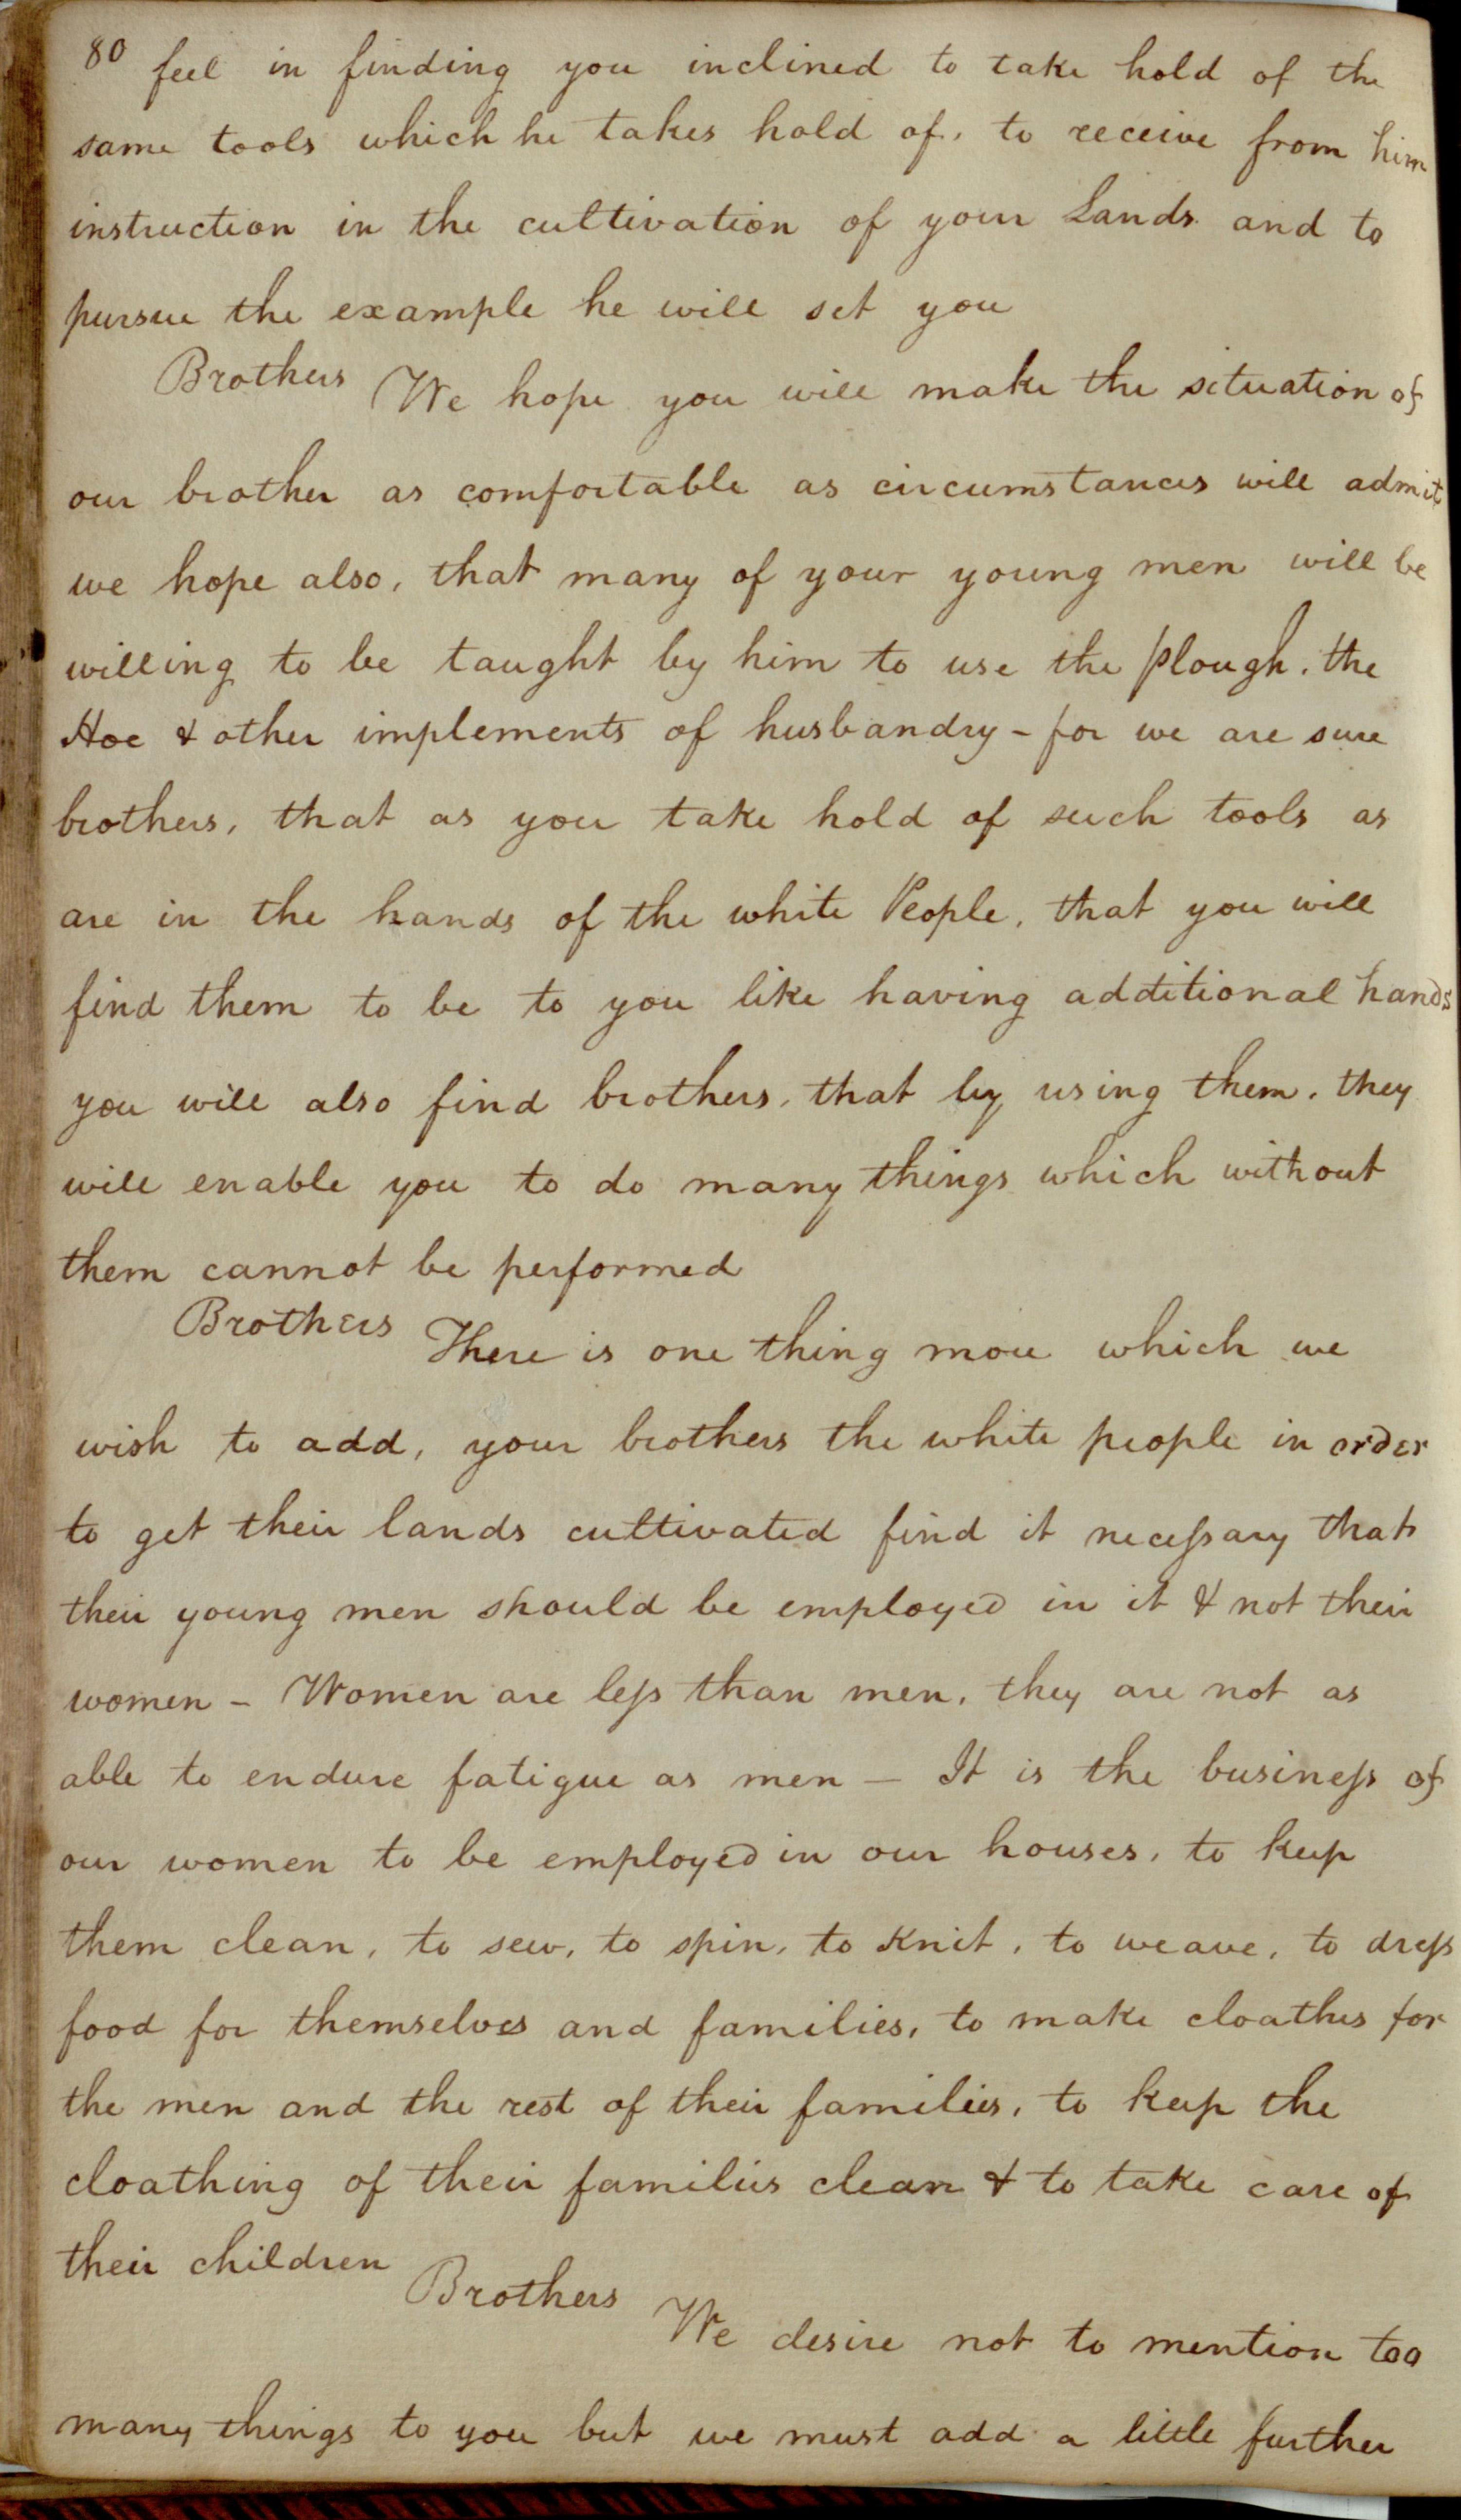 80 feel in finding you inclined to take hold of the
same tools which he takes hold of, to receive from him
instruction in the cultivation of your Lands and to
pursue the example he will set you
Brothers We hope you will make the situation of
our brother as comfortable as circumstances will admit
we hope also, that many of your young men will be
willing to be taught by him to use the plough, the
Hoe & other implements of husbandry - for we are sure
brothers, that as you take hold of such tools as
are in the hands of the white People, that you will
find them to be to you like having additional hands
you will also find brothers, that by using them, they
will enable you to do many things which without
them cannot be performed
Brothers There is one thing more which we
wish to add, your brothers the white people in order
to get their lands cultivated find it neceſsary that
their young men should be employed in it & not their
women - Women are leſs than men, they are not as
able to endure fatigue as men - It is the busineſs of
our women to be employed in our houses, to keep
them clean, to sew, to spin, to knit, to weave, to dreſs
food for themselves and families, to make cloathes for
the men and the rest of their families, to keep the
cloathing of their families clean & to take care of
their children
Brothers We desire not to mention too
many things to you but we must add a little further